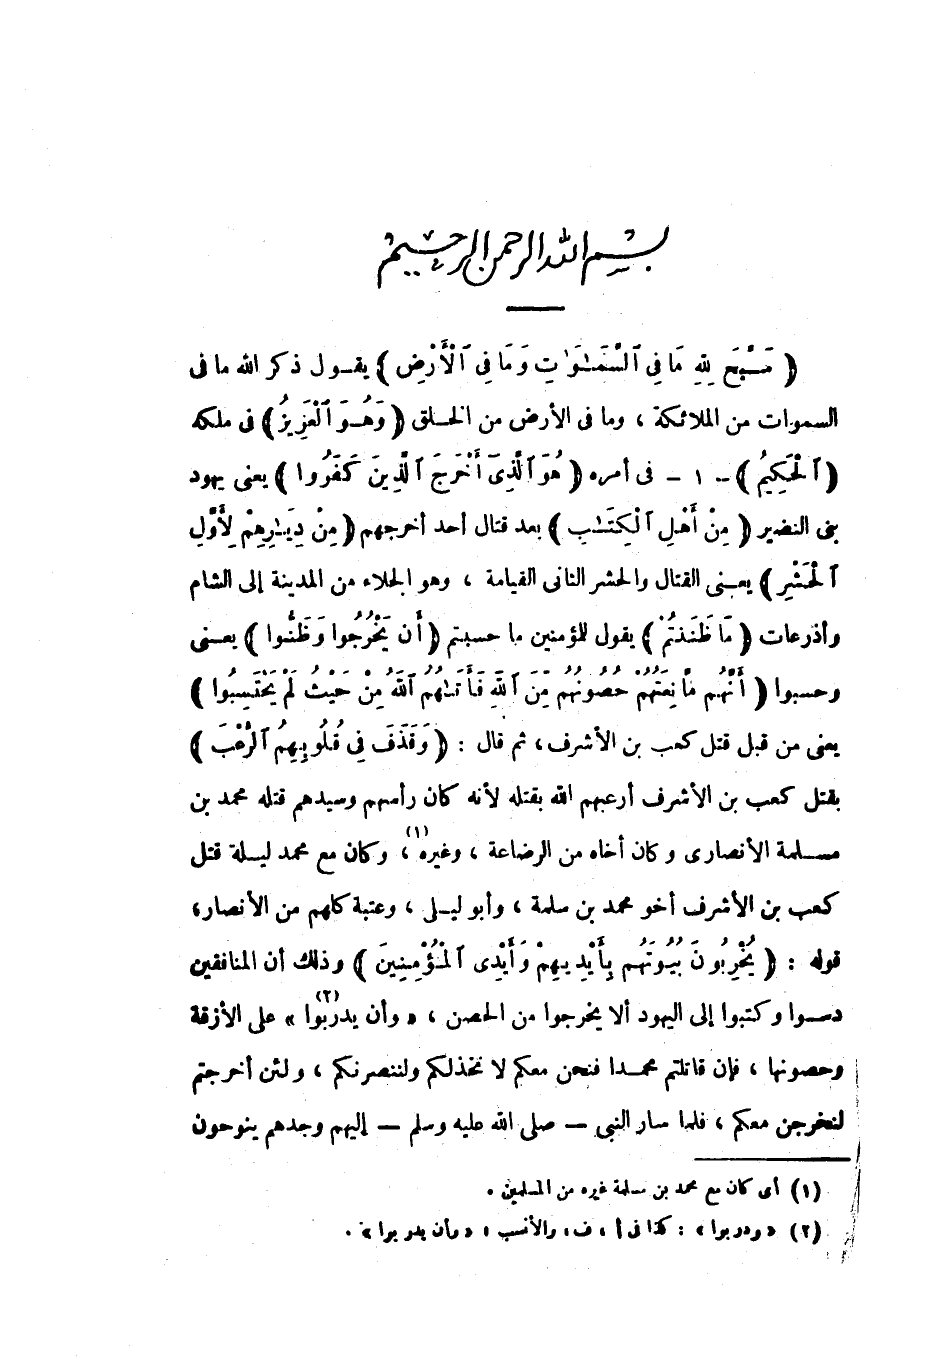 بسم الله الرحمن الرحيم
( سَبَّحَ لِلَّهِ مَا فِي ٱلسَّمَـٰوَٰتِ وَمَا فِي ٱلْأَرْضِ ) يقـول ذكر الله ما فى
السموات من الملائكة ، وما فى الأرض من الخـلق ( وَهُـوَ ٱلْعَزِيزُ ) فى ملكه
( ٱلْحَكِيمُ ) - ١ - فى أمره ( هُوَ ٱلَّذِىٓ أَخْرَجَ ٱلَّذِينَ كَفَرُوا ) يعنى يهود
بنى النضير ( مِنْ أَهْلِ ٱلْكِتَـٰبِ ) بعد قتال أحد أخرجهم ( مِنْ دِيَـٰرِهِمْ لِأَوَّلِ
ٱلْحَشْرِ ) يعـنى القتال والحشر الثانى القيامة ، وهو الجلاء من المدينة إلى الشام
وأذرعات ( مَا ظَنَنتُمْ ) يقول للمؤمنين ما حسبتم ( أَن يَخْرُجُوا وَظَنُّوا ) يعـنى
وحسبوا ( أَنَّهُم مَّانِعَتُهُمْ حُصُونُهُم مِّنَ ٱللَّهِ فَأَتَـٰهُمُ ٱللَّهُ مِنْ حَيْثُ لَمْ يَحْتَسِبُوا )
يعنى من قبل قتل كعب بن الأشرف، ثم قال : ( وَقَذَفَ فِي قُلُوبِهِمُ ٱلرُّعْبَ )
بقتل كعب بن الأشرف أرعبهم الله بقتله لأنه كان رأسهم وسيدهم قتله محمد بن
مسـلمة الأنصارى وكان أخاه من الرضاعة ، وغيره(١) ، وكان مع محمد ليـلة قتل
كعب بن الأشرف أخو محمد بن سلمة ، وأبو ليـلى ، وعتبة كلهم من الأنصار،
قوله : ( يُخْرِبُونَ بُيُوتَهُم بِأَيْدِيهِمْ وَأَيْدِى ٱلْمُؤْمِنِينَ ) وذلك أن المنافقين
دسـوا وكتبوا إلى اليهود ألا يخرجوا من الحصن ، « وأن يدربوا(٢) » على الأزقة
وحصونها ، فإن قاتلتم محمـدا فنحن معكم لا نخذلكم ولننصرنكم ، ولئن أخرجتم
لنخرجن معكم ، فلما سار النبى — صلى الله عليه وسلم — إليهم وجدهم ينوحون
(١) أى كان مع محمد بن سلمة غيره من المسلمين .
(٢) « ودربوا » : كذا فى أ ، ف، والأنسب ، « وأن يدربوا » .